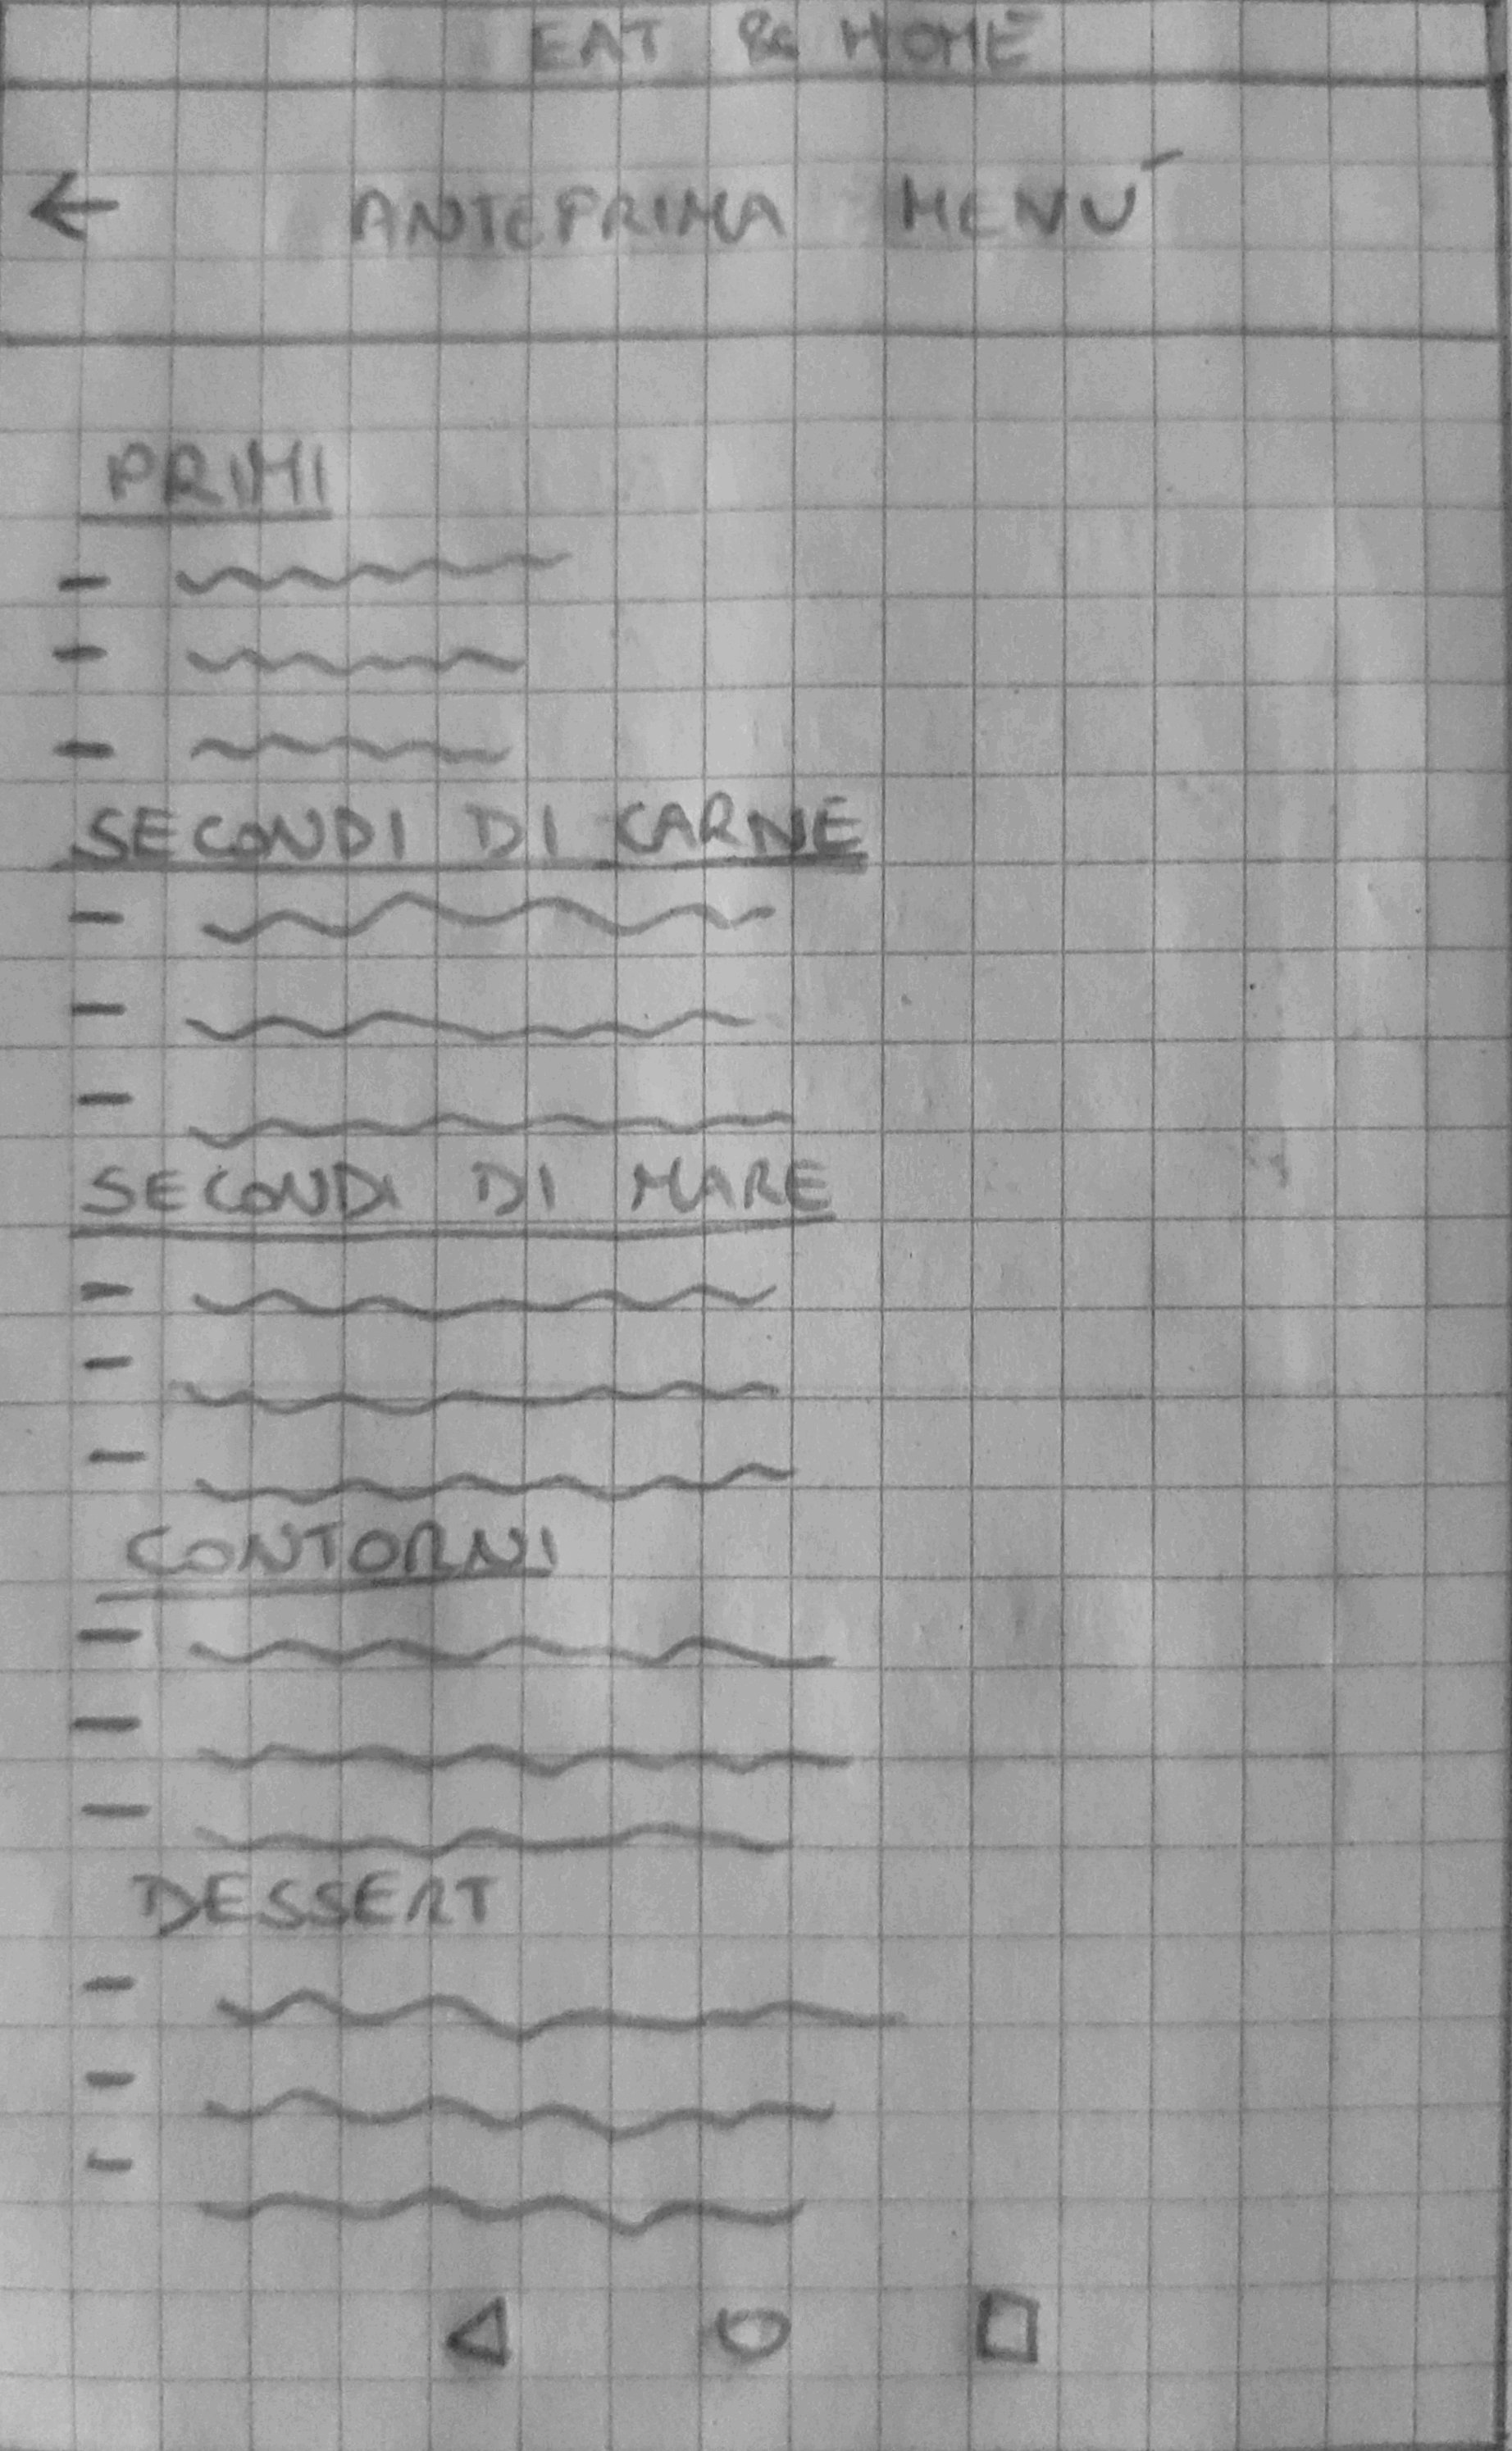 EAT & HOME
← ANTEPRIMA MENÚ
PRIMI
-
-
-
SECONDI DI CARNE
-
-
-
SECONDI DI MARE
-
-
-
CONTORNI
-
-
-
DESSERT
-
-
-